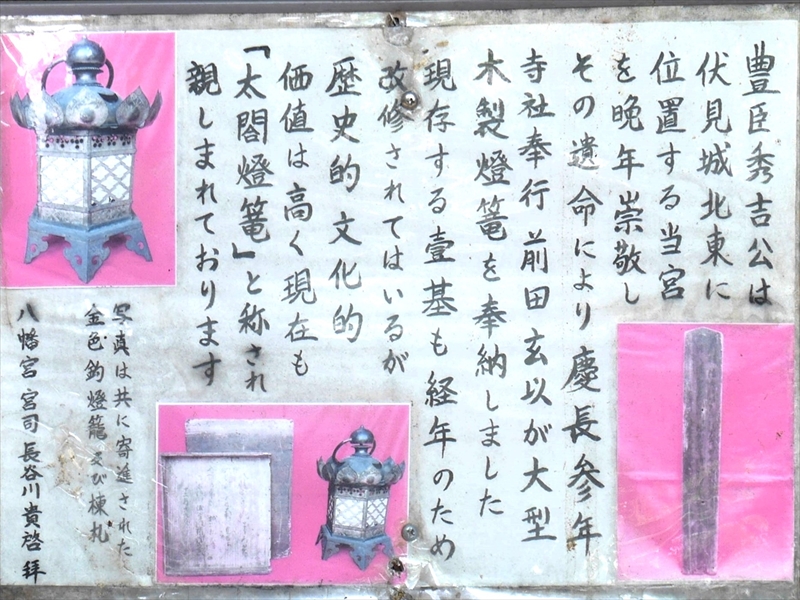 豊臣秀吉公は
伏見城北東に
位置する当宮
を晩年崇敬し
その遺命により慶長参年
寺社奉行前田玄以が大型
木製燈篭を奉納しました
現存する壹基も経年のため
改修されてはいるが
歴史的文化的
価値は高く現在も
「太閤燈篭」と称され
親しまれております
写真は共に寄進された
金色釣燈籠及び棟札
八幡宮宮司長谷川貴啓拜